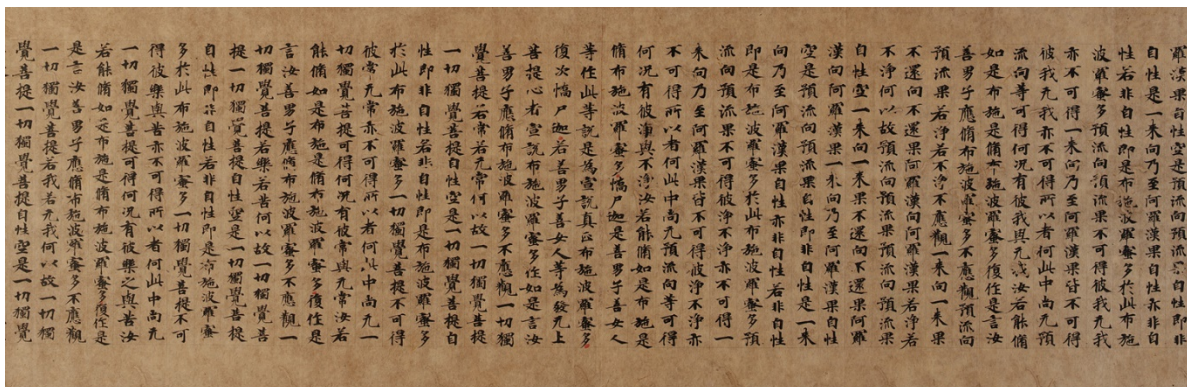 羅漢果自性空是預流向預流果自性即非
自性是一来向乃至阿羅漢果自性亦非自
性若非自性即是布施波羅蜜多於此布施
波羅蜜多預流向預流果不可得彼我无我
亦不可得一来向乃至阿羅漢果皆不可得
彼我无我亦不可得所以者何此中尚无預
流向等可得何况有彼我與无我汝若能脩
如是布施是脩布施波羅蜜多復作是言汝
善男子應脩布施波羅蜜多不應觀預流向
預流果若淨若不淨不應觀一来向一来果
不還向不還果阿羅漢向阿羅漢果若淨若
不淨何以故預流向預流果預流向預流果
自性空一来向一来果不還向不還果阿羅
漢向阿羅漢果一来向乃至阿羅漢果自性
空是預流向預流果自性即非自性是一来
向乃至阿羅漢果自性亦非自性若非自性
即是布施波羅蜜多於此布施波羅蜜多預
流向預流果不可得彼淨不淨亦不可得一
来向乃至阿羅漢果皆不可得彼淨不淨亦
不可得所以者何此中尚无預流向等可得
何况有彼淨與不淨汝若能脩如是布施是
脩布施波羅蜜多憍尸迦是善男子善女人
等作此等說是為宣說真正布施波羅蜜多
復次憍尸迦若善男子善女人等為發无上
菩提心者宣說布施波羅蜜多作如是言汝
善男子應脩布施波羅蜜多不應觀一切獨
覺菩提若常若无常何以故一切獨覺菩提
一切獨覺菩提自性空是一切獨覺菩提自
性即非自性若非自性即是布施波羅蜜多
於此布施波羅蜜多一切獨覺菩提不可得
彼常无常亦不可得所以者何此中尚无一
切獨覺菩提可得何况有彼常與无常汝若
能脩如是布施是脩布施波羅蜜多復作是
言汝善男子應脩布施波羅蜜多不應觀一
切獨覺菩提若樂若苦何以故一切獨覺菩
提一切獨覺菩提自性空是一切獨覺菩提
自性即非自性若非自性即是布施波羅蜜
多於此布施波羅蜜多一切獨覺菩提不可
得彼樂與苦亦不可得所以者何此中尚无
一切獨覺菩提可得何况有彼樂之與苦汝
若能脩如是布施是脩布施波羅蜜多復作是
是言汝善男子應脩布施波羅蜜多不應觀
一切獨覺菩提若我若无我何以故一切獨
覺菩提一切獨覺菩提自性空是一切獨覺